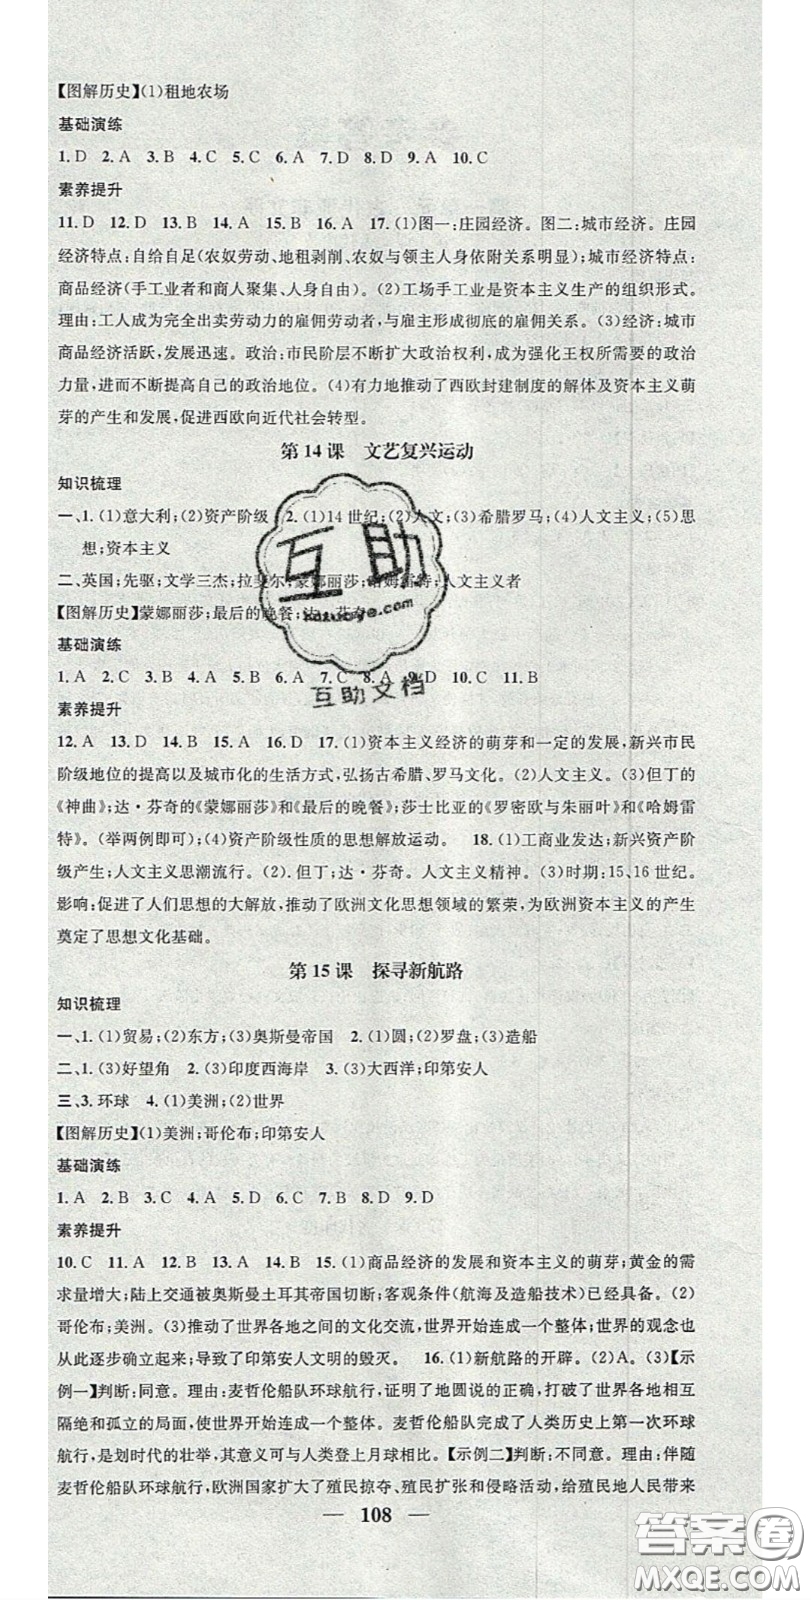 【图解历史】(1)租地农场
基础演练
1. D 2. A 3. B 4. C 5. C 6. A 7. D 8. D 9. A 10. C
素养提升
11. D 12. D 13. B 14. A 15. B 16. A 17. (1)图一:庄园经济。图二:城市经济。庄园
经济特点:自给自足(农奴劳动、地租剥削、农奴与领主人身依附关系明显);城市经济特点:
商品经济(手工业者和商人聚集、人身自由)。(2)工场手工业是资本主义生产的组织形式。
理由:工人成为完全出卖劳动力的雇佣劳动者,与雇主形成彻底的雇佣关系。(3)经济:城市
商品经济活跃,发展迅速。政治:市民阶层不断扩大政治权利,成为强化王权所需要的政治
力量,进而不断提高自己的政治地位。(4)有力地推动了西欧封建制度的解体及资本主义萌
芽的产生和发展,促进西欧向近代社会转型。
第 14 课 文艺复兴运动
知识梳理
一、1. (1)意大利;(2)资产阶级 2. (1)14 世纪;(2)人文;(3)希腊罗马;(4)人文主义;(5)思
想;资本主义
二、英国;先驱;文学三杰;拉斐尔;蒙娜丽莎;哈姆雷特;人文主义者
【图解历史】蒙娜丽莎;最后的晚餐;达·芬奇
基础演练
1. A 2. C 3. B 4. C 5. B 6. A 7. C 8. A 9. D 10. C 11. B
素养提升
12. A 13. D 14. B 15. B 16. D 17. (1)资本主义经济的萌芽和一定的发展,新兴市民
阶级地位的提高以及城市化的生活方式,弘扬古希腊、罗马文化。(2)人文主义。(3)但丁的
《神曲》;达·芬奇的《蒙娜丽莎》和《最后的晚餐》;莎士比亚的《罗密欧与朱丽叶》和《哈姆雷
特》。(举两例即可);(4)资产阶级性质的思想解放运动。 18. (1)工商业发达;新兴资产阶
级产生;人文主义思潮流行。(2). 但丁;达·芬奇。人文主义精神。(3)时期:15、16 世纪。
影响:促进了人们思想的大解放,推动了欧洲文化思想领域的繁荣,为欧洲资本主义的产生
奠定了思想文化基础。
第 15 课 探寻新航路
知识梳理
一、1. (1)贸易;(2)东方;(3)奥斯曼帝国 2. (1)圆;(2)罗盘;(3)造船
二、1. (3)好望角 2. (4)印度西海岸 3. (3)大西洋;印第安人
三、3. 环球 4. (1)美洲;(2)世界
【图解历史】(1)美洲;哥伦布;印第安人
基础演练
1. A 2. B 3. C 4. A 5. D 6. C 7. B 8. D 9. D
素养提升
10. C 11. A 12. B 13. A 14. B 15. (1)商品经济的发展和资本主义的萌芽;黄金的需
求量增大;陆上交通被奥斯曼土耳其帝国切断;客观条件(航海及造船技术)已经具备。(2)
哥伦布;美洲。(3)推动了世界各地之间的文化交流,世界开始连成一个整体;世界的观念也
从此逐步确立起来;导致了印第安人文明的毁灭。 16. (1)新航路的开辟。(2)A。(3)【示
例一】判断:同意。理由:麦哲伦船队环球航行,证明了地圆说的正确,打破了世界各地相互
隔绝和孤立的局面,使世界开始连成一个整体。麦哲伦船队完成了人类历史上第一次环球
航行,是划时代的壮举,其意义可与人类登上月球相比。【示例二】判断:不同意。理由:伴随
麦哲伦船队环球航行,欧洲国家扩大了殖民掠夺、殖民扩张和侵略活动,给殖民地人民带来
— 108 —
互助
互助文档
答案圈
MXQE.COM